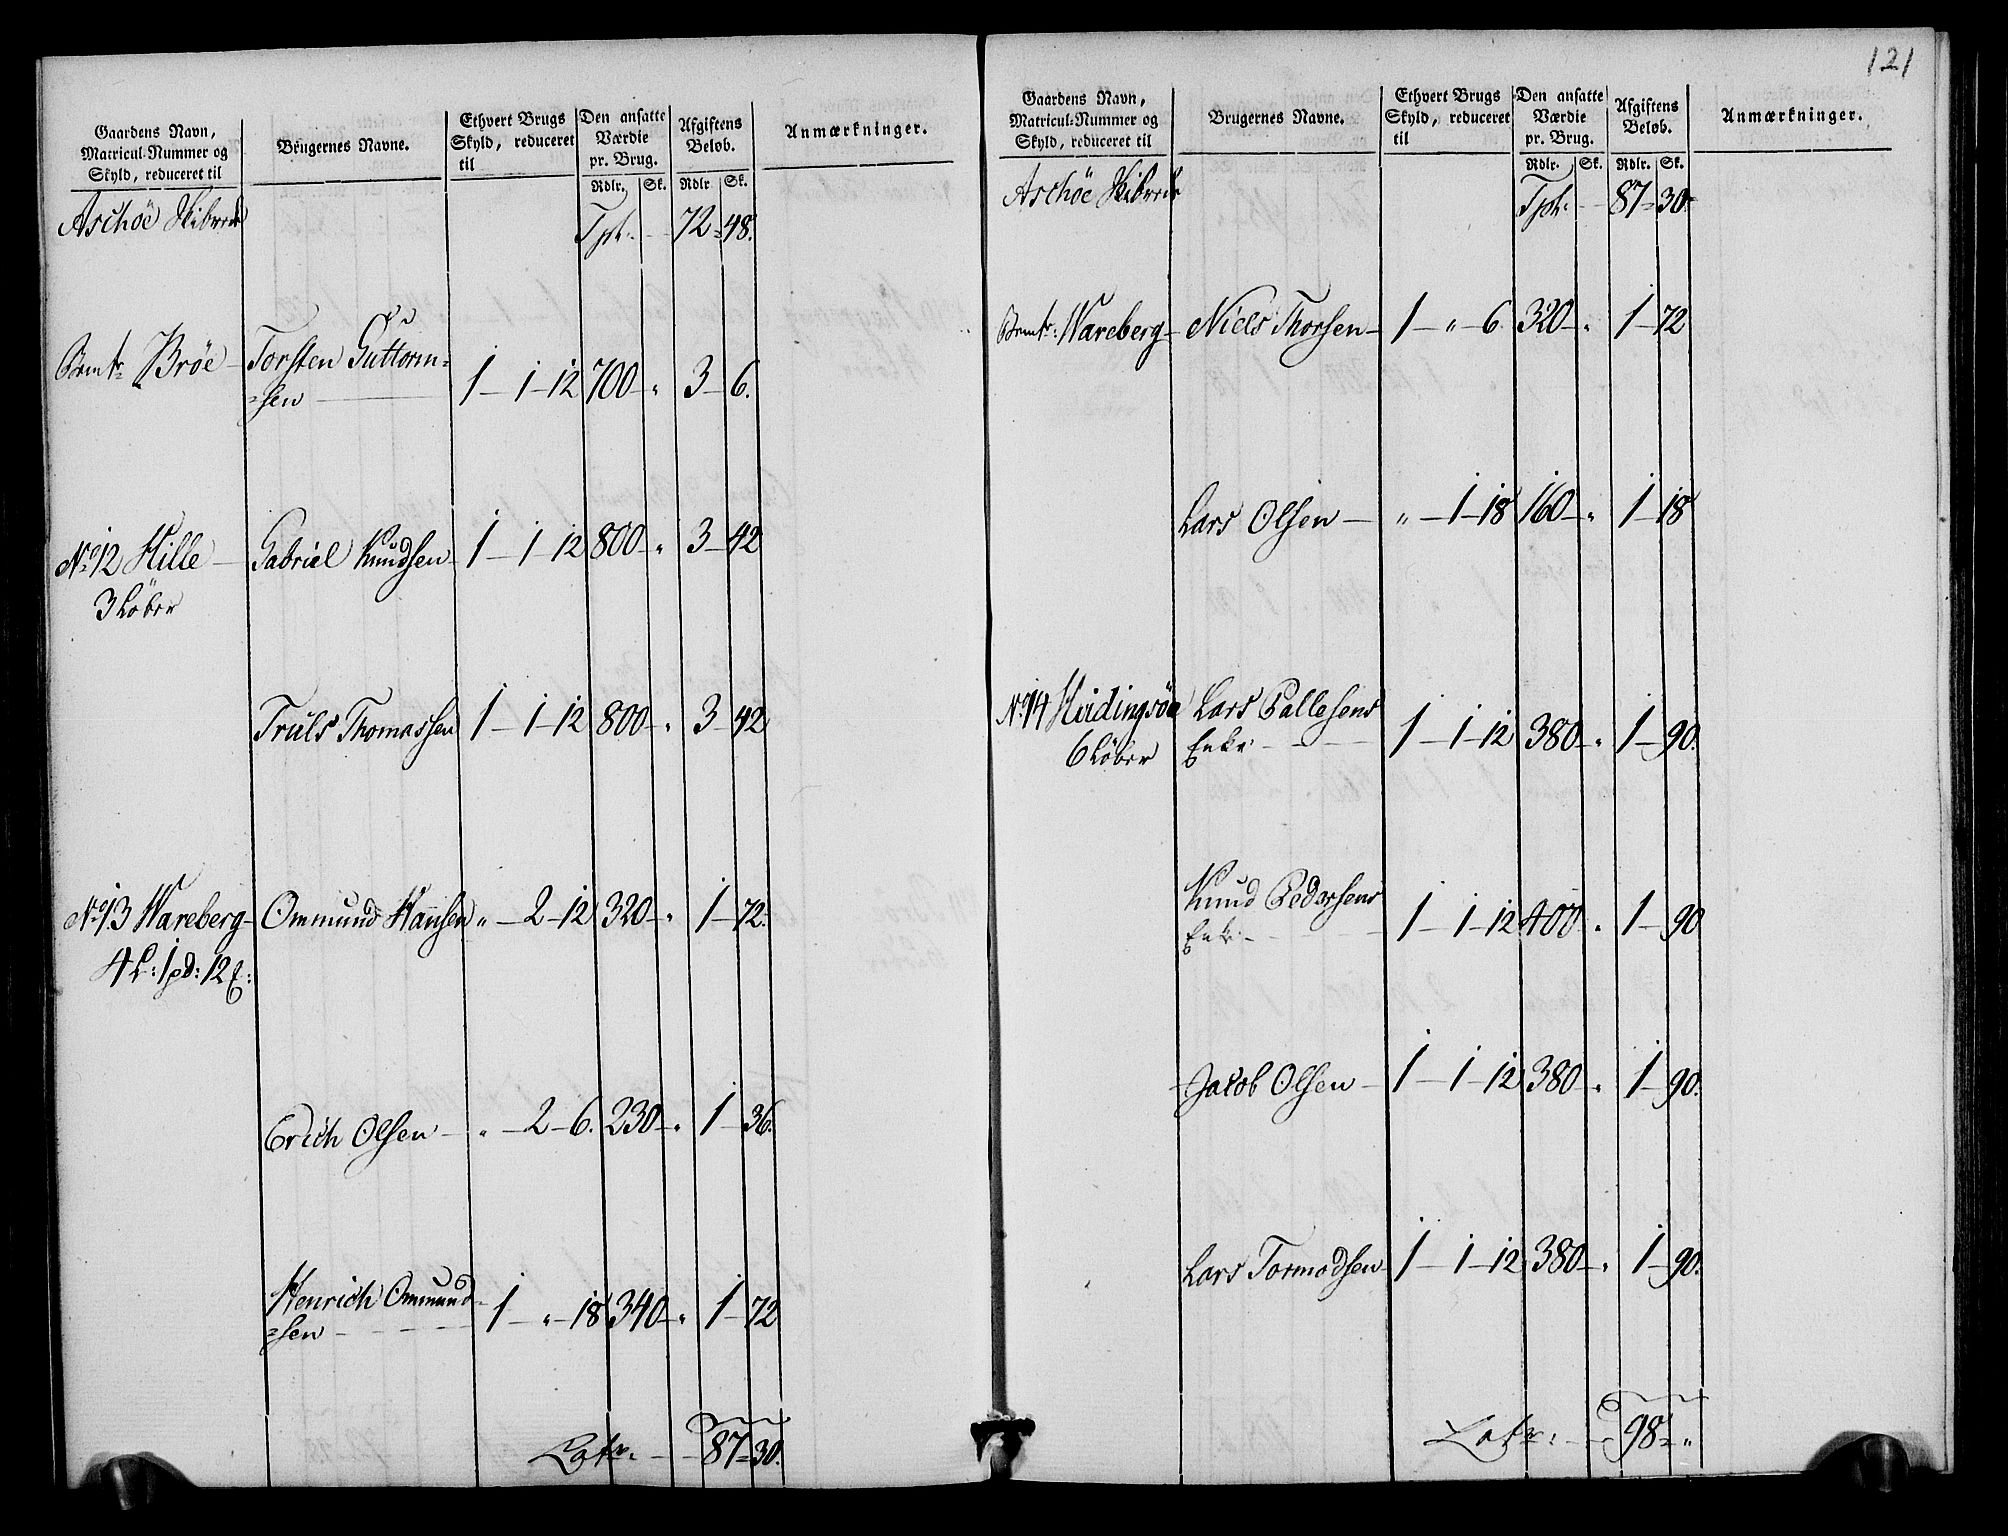 Gaardens Navn, Matricul-Nummer og Skyld, reduceret til | Brugernes Navne. | Ethvert Brugs Skyld, reduceret til | Den ansatte Værdie pr. Brug. Rdlr. Sk. | Afgiftens Beløb. Rdlr. Sk. | Anmærkninger.
Aschöe Skibrede Tpt: 72 = 48.
Bemte Bröe Torsten Guttorm=
=sen 1 – 1 – 12 700 – " 3 – 6.
No 12 Hille Gabriel Knudsen 1 – 1 – 12 800 – " 3 – 42
3 Löber
Truls Thomassen 1 – 1 – 12 800 – " 3 – 42
No 13 Wareberg Ommund Hansen " – 2 – 12 320 – " 1 – 72.
4 L: 1 pd: 12
Erich Olsen " – 2 – 6. 230 – " 1 – 36.
Henrich Ommund=
=sen 1 – " – 18 340 – " 1 – 72
Latr: 87 = 30.
121
Gaardens Navn, Matricul-Nummer og Skyld, reduceret til | Brugernes Navne. | Ethvert Brugs Skyld, reduceret til | Den ansatte Værdie pr. Brug. Rdlr. Sk. | Afgiftens Beløb. Rdlr. Sk. | Anmærkninger.
Aschöe Skibrede Tpt: 87 = 30.
Bemte: Wareberg Niels Thorsen 1 – " – 6 320 – " 1 – 72
Lars Olsen " – 1 – 18 160 – " 1 – 18
No 14 Hvidingsöe Lars Pallesens
6 Löber Enke 1 – 1 – 12 380 – " 1 – 90.
Knud Pedersens
Enke 1 – 1 – 12 400 – " 1 – 90
Jacob Olsen 1 – 1 – 12 380 – " 1 – 90.
Lars Tormodsen 1 – 1 – 12 380 – " 1 – 90.
Latr: 98 = "